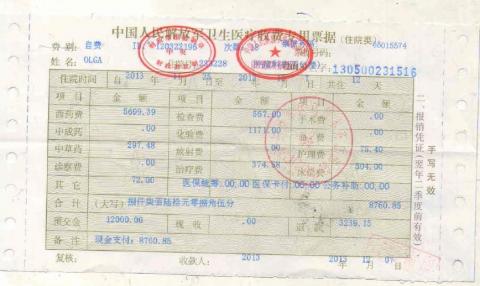 中国人民解放军卫生医疗收费专用票据 (住院类)
费别: 自费 ID 120322196 次数 65015574
姓名: OLGA 233228 字: 130500231516
住院时间 自 2013 年 11 月 25 日至 2013 年 12 月 日共住 12 天
项目 金额 项目 金额 项目 金额
西药费 5699.39 检查费 567.00 手术费 .00
中成药 .00 化验费 1171.00 .00
中草药 297.48 放射费 .00 护理费 75.40
诊察费 .00 治疗费 374.58 床位费 504.00
其它 72.00 医保统筹:00.00 医保卡付:00.00 公务补助:00.00
合计 (大写) 捌仟柒佰陆拾元零捌角伍分 8760.85
预交金 12000.00 应收 .00 退款 3239.15
备注 现金支付: 8760.85
复核: 收款人: 2013 2013 年 12 月 07 日
二、报销凭证(翌年一季度前有效)
手写无效